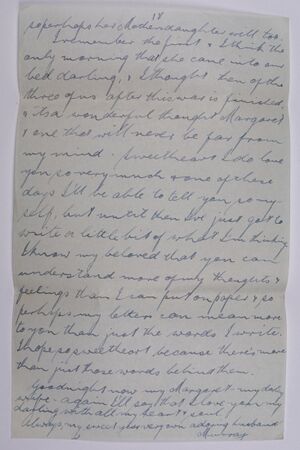 18
perhaps has Mother daughter will too.
I remember the first & I think the
only morning that she came into our
bed darling, & I thought then of the
three of us after this war is finished,
& its a wonderful thought Margaret
& one that will never be far from
my mind. Sweetheart I do love
you so very much & one of these
days I'll be able to tell you so my-
self, but until then I've just got to
write a little bit of what I'm thinking.
I know my beloved that you can
understand more of my thoughts &
feelings than I can put on paper & so
perhaps my letters can mean more
to you than just the words I write.
I hope so sweetheart because there's more
than just those words behind them.
Goodnight now my Margaret my
wife - again I'll say that I love you my
darling with all my heart & soul.
Always, my sweet your very own adoring husband
Murray